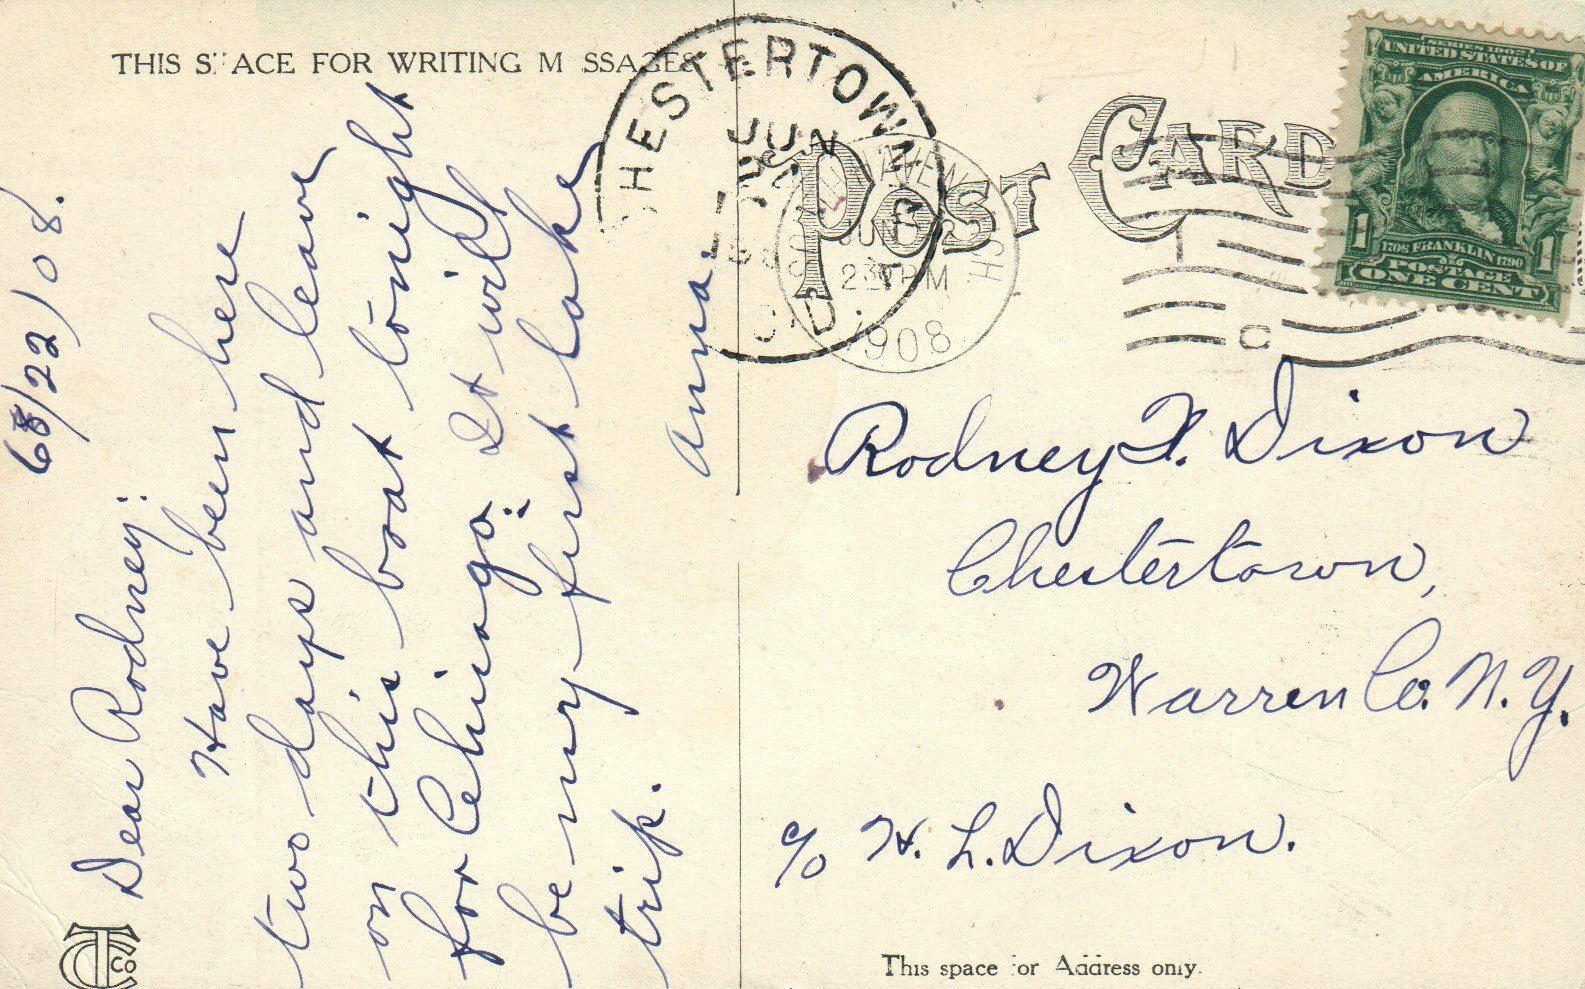 THIS SPACE FOR WRITING MESSAGES
6/22/08.
Dear Rodney:
Have been here
two days and leave
on this boat tonight
for Chicago. It will
be my first lake
trip.
Anna.
POST CARD
CHESTERTOWN
JUN
GRAND HAVEN MICH
JUN 22
230PM
1908
1
C
SERIES 1902
UNITED STATES OF
AMERICA
1706 FRANKLIN 1790
POSTAGE
1 ONE CENT 1
Rodney
Dixon
Chestertown,
Warren Co. N.Y.
c/o H. L. Dixon.
This space for Address only.
CT CO